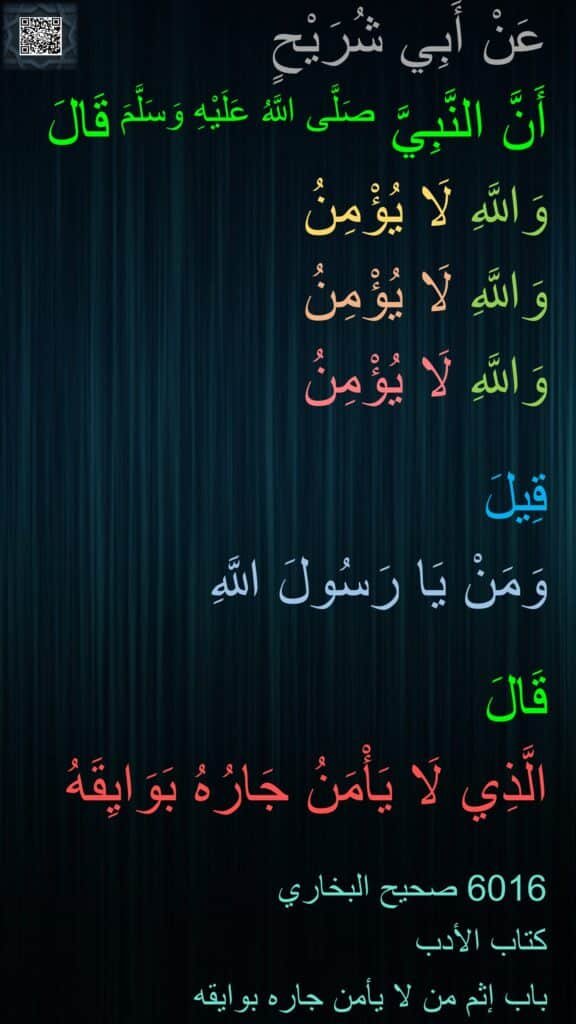 عَنْ أَبِي شُرَيْحٍ
أَنَّ النَّبِيَّ صَلَّى اللَّهُ عَلَيْهِ وَسَلَّمَ قَالَ
وَاللَّهِ لَا يُؤْمِنُ
وَاللَّهِ لَا يُؤْمِنُ
وَاللَّهِ لَا يُؤْمِنُ
قِيلَ
وَمَنْ يَا رَسُولَ اللَّهِ
قَالَ
الَّذِي لَا يَأْمَنُ جَارُهُ بَوَايِقَهُ
6016 صحيح البخاري
كتاب الأدب
باب إثم من لا يأمن جاره بوايقه